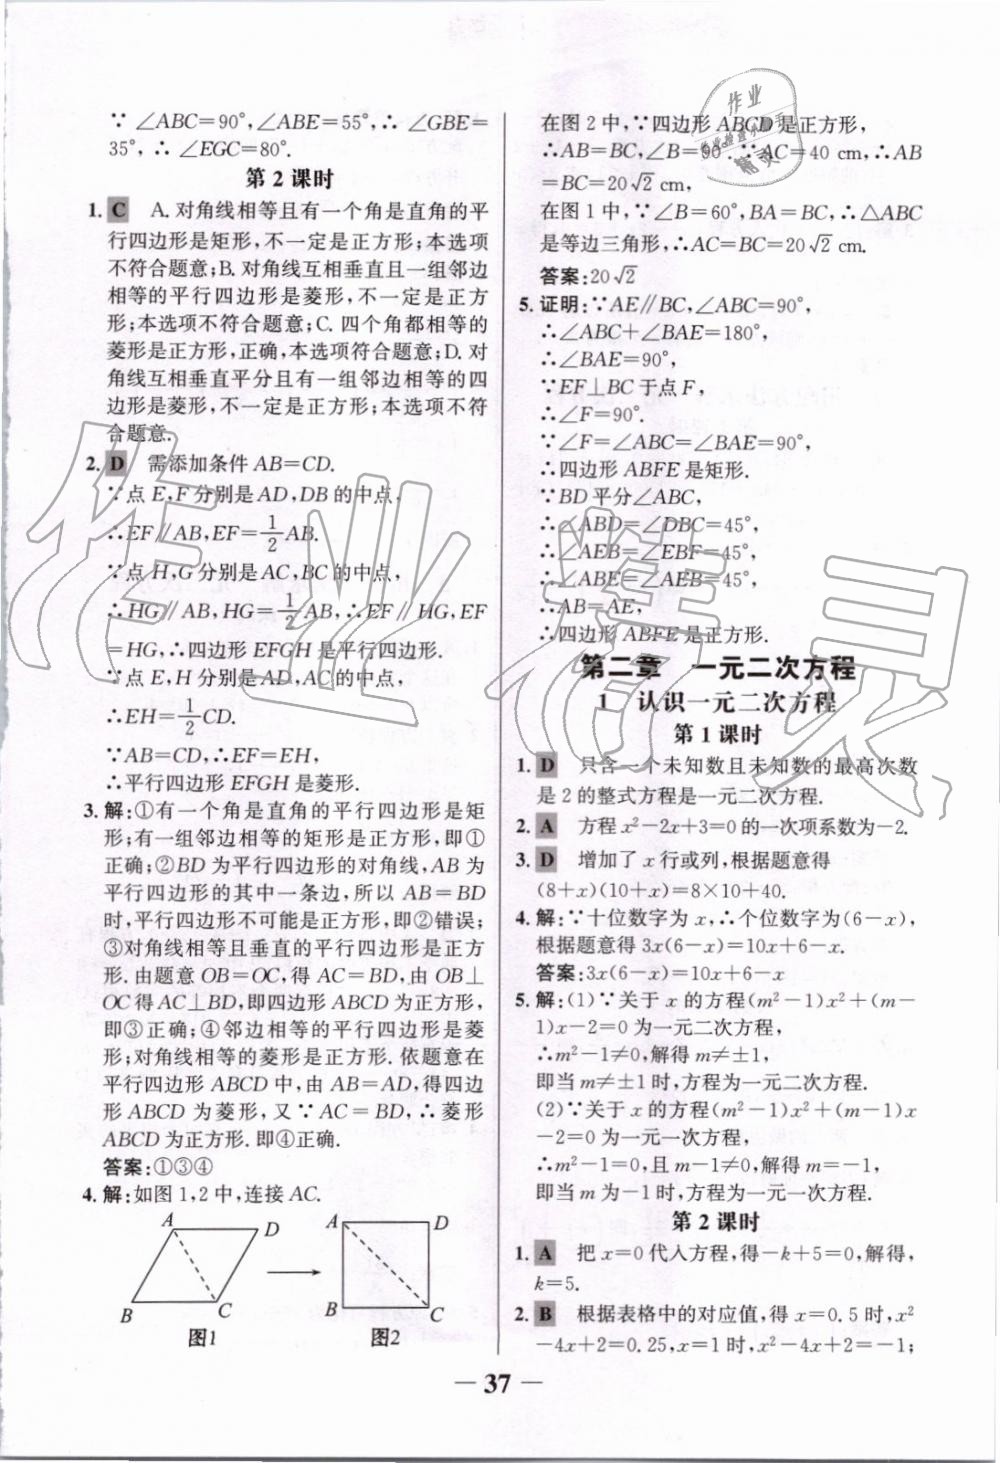 ∵ ∠ABC=90°,∠ABE=55°,∴ ∠GBE=
35°,∴ ∠EGC=80°.
第 2 课时
1. C A. 对角线相等且有一个角是直角的平
行四边形是矩形,不一定是正方形;本选项
不符合题意;B. 对角线互相垂直且一组邻边
相等的平行四边形是菱形,不一定是正方
形;本选项不符合题意;C. 四个角都相等的
菱形是正方形,正确,本选项符合题意;D. 对
角线互相垂直平分且有一组邻边相等的四
边形是菱形,不一定是正方形;本选项不符
合题意.
2. D 需添加条件 AB=CD.
∵点 E,F 分别是 AD,DB 的中点,
∴EF∥AB,EF=1/2 AB.
∵点 H,G 分别是 AC,BC 的中点,
∴HG∥AB,HG=1/2 AB,∴EF∥HG,EF
=HG,∴四边形 EFGH 是平行四边形.
∵点 E,H 分别是 AD,AC 的中点,
∴EH=1/2 CD.
∵AB=CD,∴EF=EH,
∴平行四边形 EFGH 是菱形.
3. 解:①有一个角是直角的平行四边形是矩
形;有一组邻边相等的矩形是正方形,即①
正确;②BD 为平行四边形的对角线,AB 为
平行四边形的其中一条边,所以 AB=BD
时,平行四边形不可能是正方形,即②错误;
③对角线相等且垂直的平行四边形是正方
形. 由题意 OB=OC,得 AC=BD,由 OB⊥
OC 得 AC⊥BD,即四边形 ABCD 为正方形,
即③正确;④邻边相等的平行四边形是菱
形;对角线相等的菱形是正方形. 依题意在
平行四边形 ABCD 中,由 AB=AD,得四边
形 ABCD 为菱形,又∵AC=BD,∴菱形
ABCD 为正方形. 即④正确.
答案:①③④
4. 解:如图 1,2 中,连接 AC.
A D B C
图1
A D B C
图2
在图 2 中,∵四边形 ABCD 是正方形,
∴AB=BC,∠B=90°∵AC=40 cm,∴AB
=BC=20√2 cm,
在图 1 中,∵∠B=60°,BA=BC,∴△ABC
是等边三角形,∴AC=BC=20√2 cm.
答案:20√2
5. 证明:∵AE∥BC,∠ABC=90°,
∴∠ABC+∠BAE=180°,
∴∠BAE=90°,
∵EF⊥BC 于点 F,
∴∠F=90°.
∵∠F=∠ABC=∠BAE=90°,
∴四边形 ABFE 是矩形.
∵BD 平分∠ABC,
∴∠ABD=∠DBC=45°,
∴∠AEB=∠EBF=45°,
∴∠ABE=∠AEB=45°,
∴AB=AE,
∴四边形 ABFE 是正方形.
第二章 一元二次方程
1 认识一元二次方程
第 1 课时
1. D 只含一个未知数且未知数的最高次数
是 2 的整式方程是一元二次方程.
2. A 方程 x²-2x+3=0 的一次项系数为-2.
3. D 增加了 x 行或列,根据题意得
(8+x)(10+x)=8×10+40.
4. 解:∵十位数字为 x,∴个位数字为(6-x),
根据题意得 3x(6-x)=10x+6-x.
答案:3x(6-x)=10x+6-x
5. 解:(1)∵关于 x 的方程(m²-1)x²+(m-
1)x-2=0 为一元二次方程,
∴m²-1≠0,解得 m≠±1,
即当 m≠±1 时,方程为一元二次方程.
(2)∵关于 x 的方程(m²-1)x²+(m-1)x
-2=0 为一元一次方程,
∴m²-1=0,且 m-1≠0,解得 m=-1,
即当 m 为-1 时,方程为一元一次方程.
第 2 课时
1. A 把 x=0 代入方程,得-k+5=0,解得,
k=5.
2. B 根据表格中的对应值,得 x=0.5 时,x²
-4x+2=0.25,x=1 时,x²-4x+2=-1;
— 37 —
作业精灵